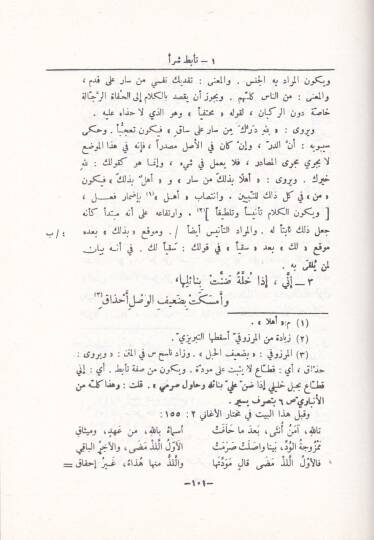 ١ – تأبط شراً
ويكون المراد به الجنس . والمعنى : تفديك نفسي من سار على قدم ،
والمعنى : من الناس كلهم . ويجوز أن يقصد بالكلام إلى الحفاة الرجّالة
خاصة دون الركبان ، لقوله « محتفياً » وهو الذي لا حذاء عليه .
ويروى : « لله درّك من سار على ساق » فيكون تعجّباً . وحكى
سيبويه : أنّ الدرّ ، وإن كان في الأصل مصدراً ، فإنه في هذا الموضع
لا يجري مجرى المصادر ، فلا يعمل في شيء ، وإنما هو كقولك : لله
خيرك . ويروى : « أهلا بذلك من سار » و « أهلٌ بذلك » فيكون
« من » في كل ذلك للتبيين . وانتصاب « أهل » (١) بإضمار فعل ،
[ ويكون الكلام تأنيساً وتلطيفاً ](٢) . وارتفاعه على أنه مبتدأ كأنه
جعل ذلك ثابتاً له . والمراد التأنيس أيضاً / . وموقع « بذلك » بعده ٤/ب
موقع « لك » بعد « سقياً » في قولك : سَقياً لك . في أنه بيان
لمن يُلقى به .
٣ – إنّي ، إذا خُلّةٌ ضَنَّتْ بِنائِلِها،
وأمسكَتْ بِضَعيفِ الوَصلِ أحْذاقِ(٣)
(١) م : « أهلا » .
(٢) زيادة من المرزوقي أسقطها التبريزيّ .
(٣) المرزوقي : « بضعيف الحبل » . وزاد ناسخ س في المتن : « ويروى :
حذّاق ، أي : قطّاع لا يثبت على مودّة . ويكون من صفة تأبط . أي : إني
قطّاع بحبل خليلي إذا ضنّ عليّ بنائله وحاول صرمي » . قلت : وهذا كله من
الأنباري ص ٦ بتصرف يسير .
وقبل هذا البيت في مختار الأغاني ٢ : ١٥٥ :
تاللهِ ، آمَنُ أُنثى ، بَعدَ ما حَلَفَتْ أسماءُ باللهِ ، مِن عَهدٍ ، وميثاقِ
مَمْزُوجةُ الوُدّ ، بَينا واصَلَتْ صَرَمَتْ الأوّلُ اللَّذْ مَضَى ، والآخِرُ الباقي
فالأوّلُ اللَّذْ مَضَى قالٍ مَودَّتَها واللَّذُ منها هُذاءٌ ، غَيرُ إحقاقِ =
– ١٠١ –